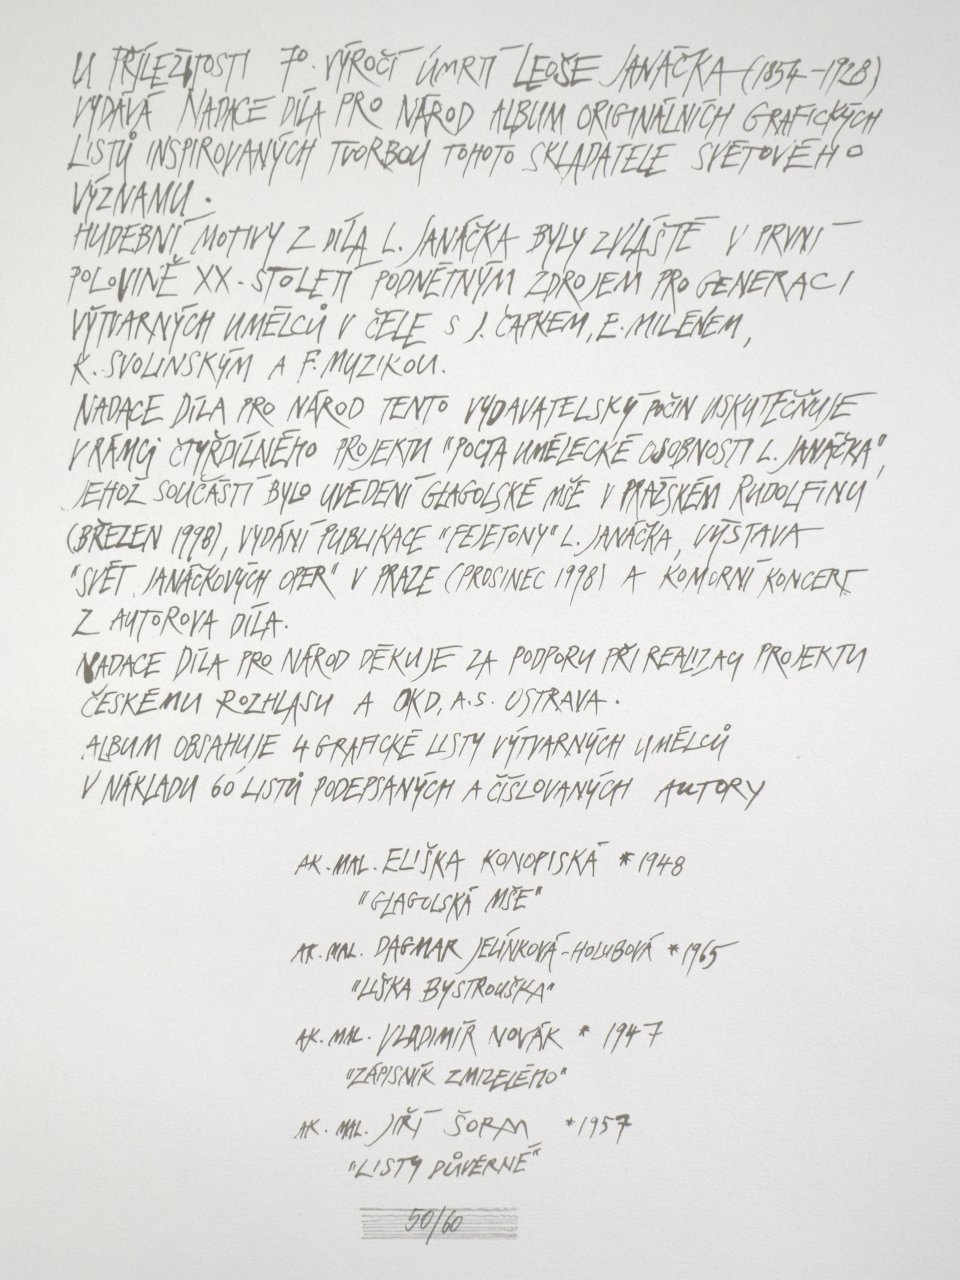 U PŘÍLEŽITOSTI 70. VÝROČÍ ÚMRTÍ LEOŠE JANÁČKA (1854-1928)
VYDÁVÁ NADACE DÍLA PRO NÁROD ALBUM ORIGINÁLNÍCH GRAFICKÝCH
LISTŮ INSPIROVANÝCH TVORBOU TOHOTO SKLADATELE SVĚTOVÉHO
VÝZNAMU.
HUDEBNÍ MOTIVY Z DÍLA L. JANÁČKA BYLY ZVLÁŠTĚ V PRVNÍ
POLOVINĚ XX. STOLETÍ PODNĚTNÝM ZDROJEM PRO GENERACI
VÝTVARNÝCH UMĚLCŮ V ČELE S J. ČAPKEM, E. MILÉNEM,
K. SVOLINSKÝM A F. MUZIKOU.
NADACE DÍLA PRO NÁROD TENTO VYDAVATELSKÝ POČIN USKUTEČŇUJE
V RÁMCI ČTYŘDÍLNÉHO PROJEKTU "POCTA UMĚLECKÉ OSOBNOSTI L. JANÁČKA",
JEHOŽ SOUČÁSTÍ BYLO UVEDENÍ GLAGOLSKÉ MŠE V PRAŽSKÉM RUDOLFINU
(BŘEZEN 1998), VYDÁNÍ PUBLIKACE "FEJETONY" L. JANÁČKA, VÝSTAVA
"SVĚT JANÁČKOVÝCH OPER" V PRAZE (PROSINEC 1998) A KOMORNÍ KONCERT
Z AUTOROVA DÍLA.
NADACE DÍLA PRO NÁROD DĚKUJE ZA PODPORU PŘI REALIZACI PROJEKTU
ČESKÉMU ROZHLASU A OKD, A.S. OSTRAVA.
ALBUM OBSAHUJE 4 GRAFICKÉ LISTY VÝTVARNÝCH UMĚLCŮ
V NÁKLADU 60 LISTŮ PODEPSANÝCH A ČÍSLOVANÝCH AUTORY
AK. MAL. ELIŠKA KONOPISKÁ *1948
"GLAGOLSKÁ MŠE"
AK. MAL. DAGMAR JELÍNKOVÁ-HOLUBOVÁ *1965
"LIŠKA BYSTROUŠKA"
AK. MAL. VLADIMÍR NOVÁK * 1947
"ZÁPISNÍK ZMIZELÉHO"
AK. MAL. JIŘÍ ŠORM *1957
"LISTY DŮVĚRNÉ"
50/60